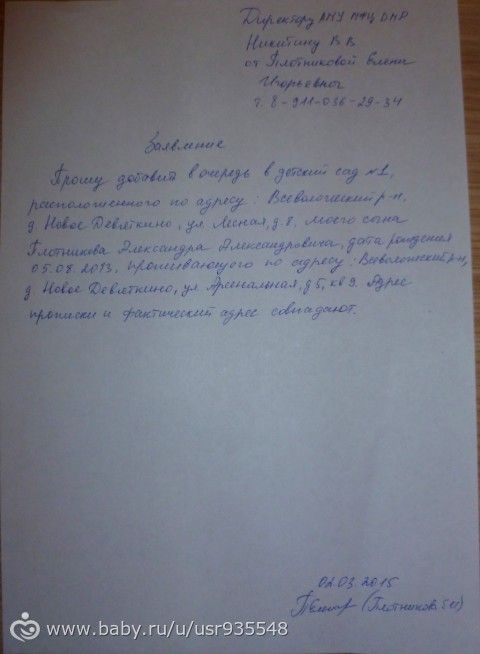 Директору АМУ МФЦ
Никитину В В
от Плотниковой Елены
Игорьевны
т. 8-911-036-29-34
Заявление
Прошу добавить в очередь в детский сад №1,
расположенного по адресу: Всеволожский р-н,
д. Новое Девяткино, ул Лесная, д. 8. моего сына
Плотникова Александра Александровича, дата рождения
05.08.2013, проживающего по адресу: Всеволожский р-н,
д. Новое Девяткино, ул Арсенальная, д 5, кв 9. Адрес
прописки и фактический адрес совпадают.
02.03.2015
(Плотникова
www.baby.ru/u/usr935548